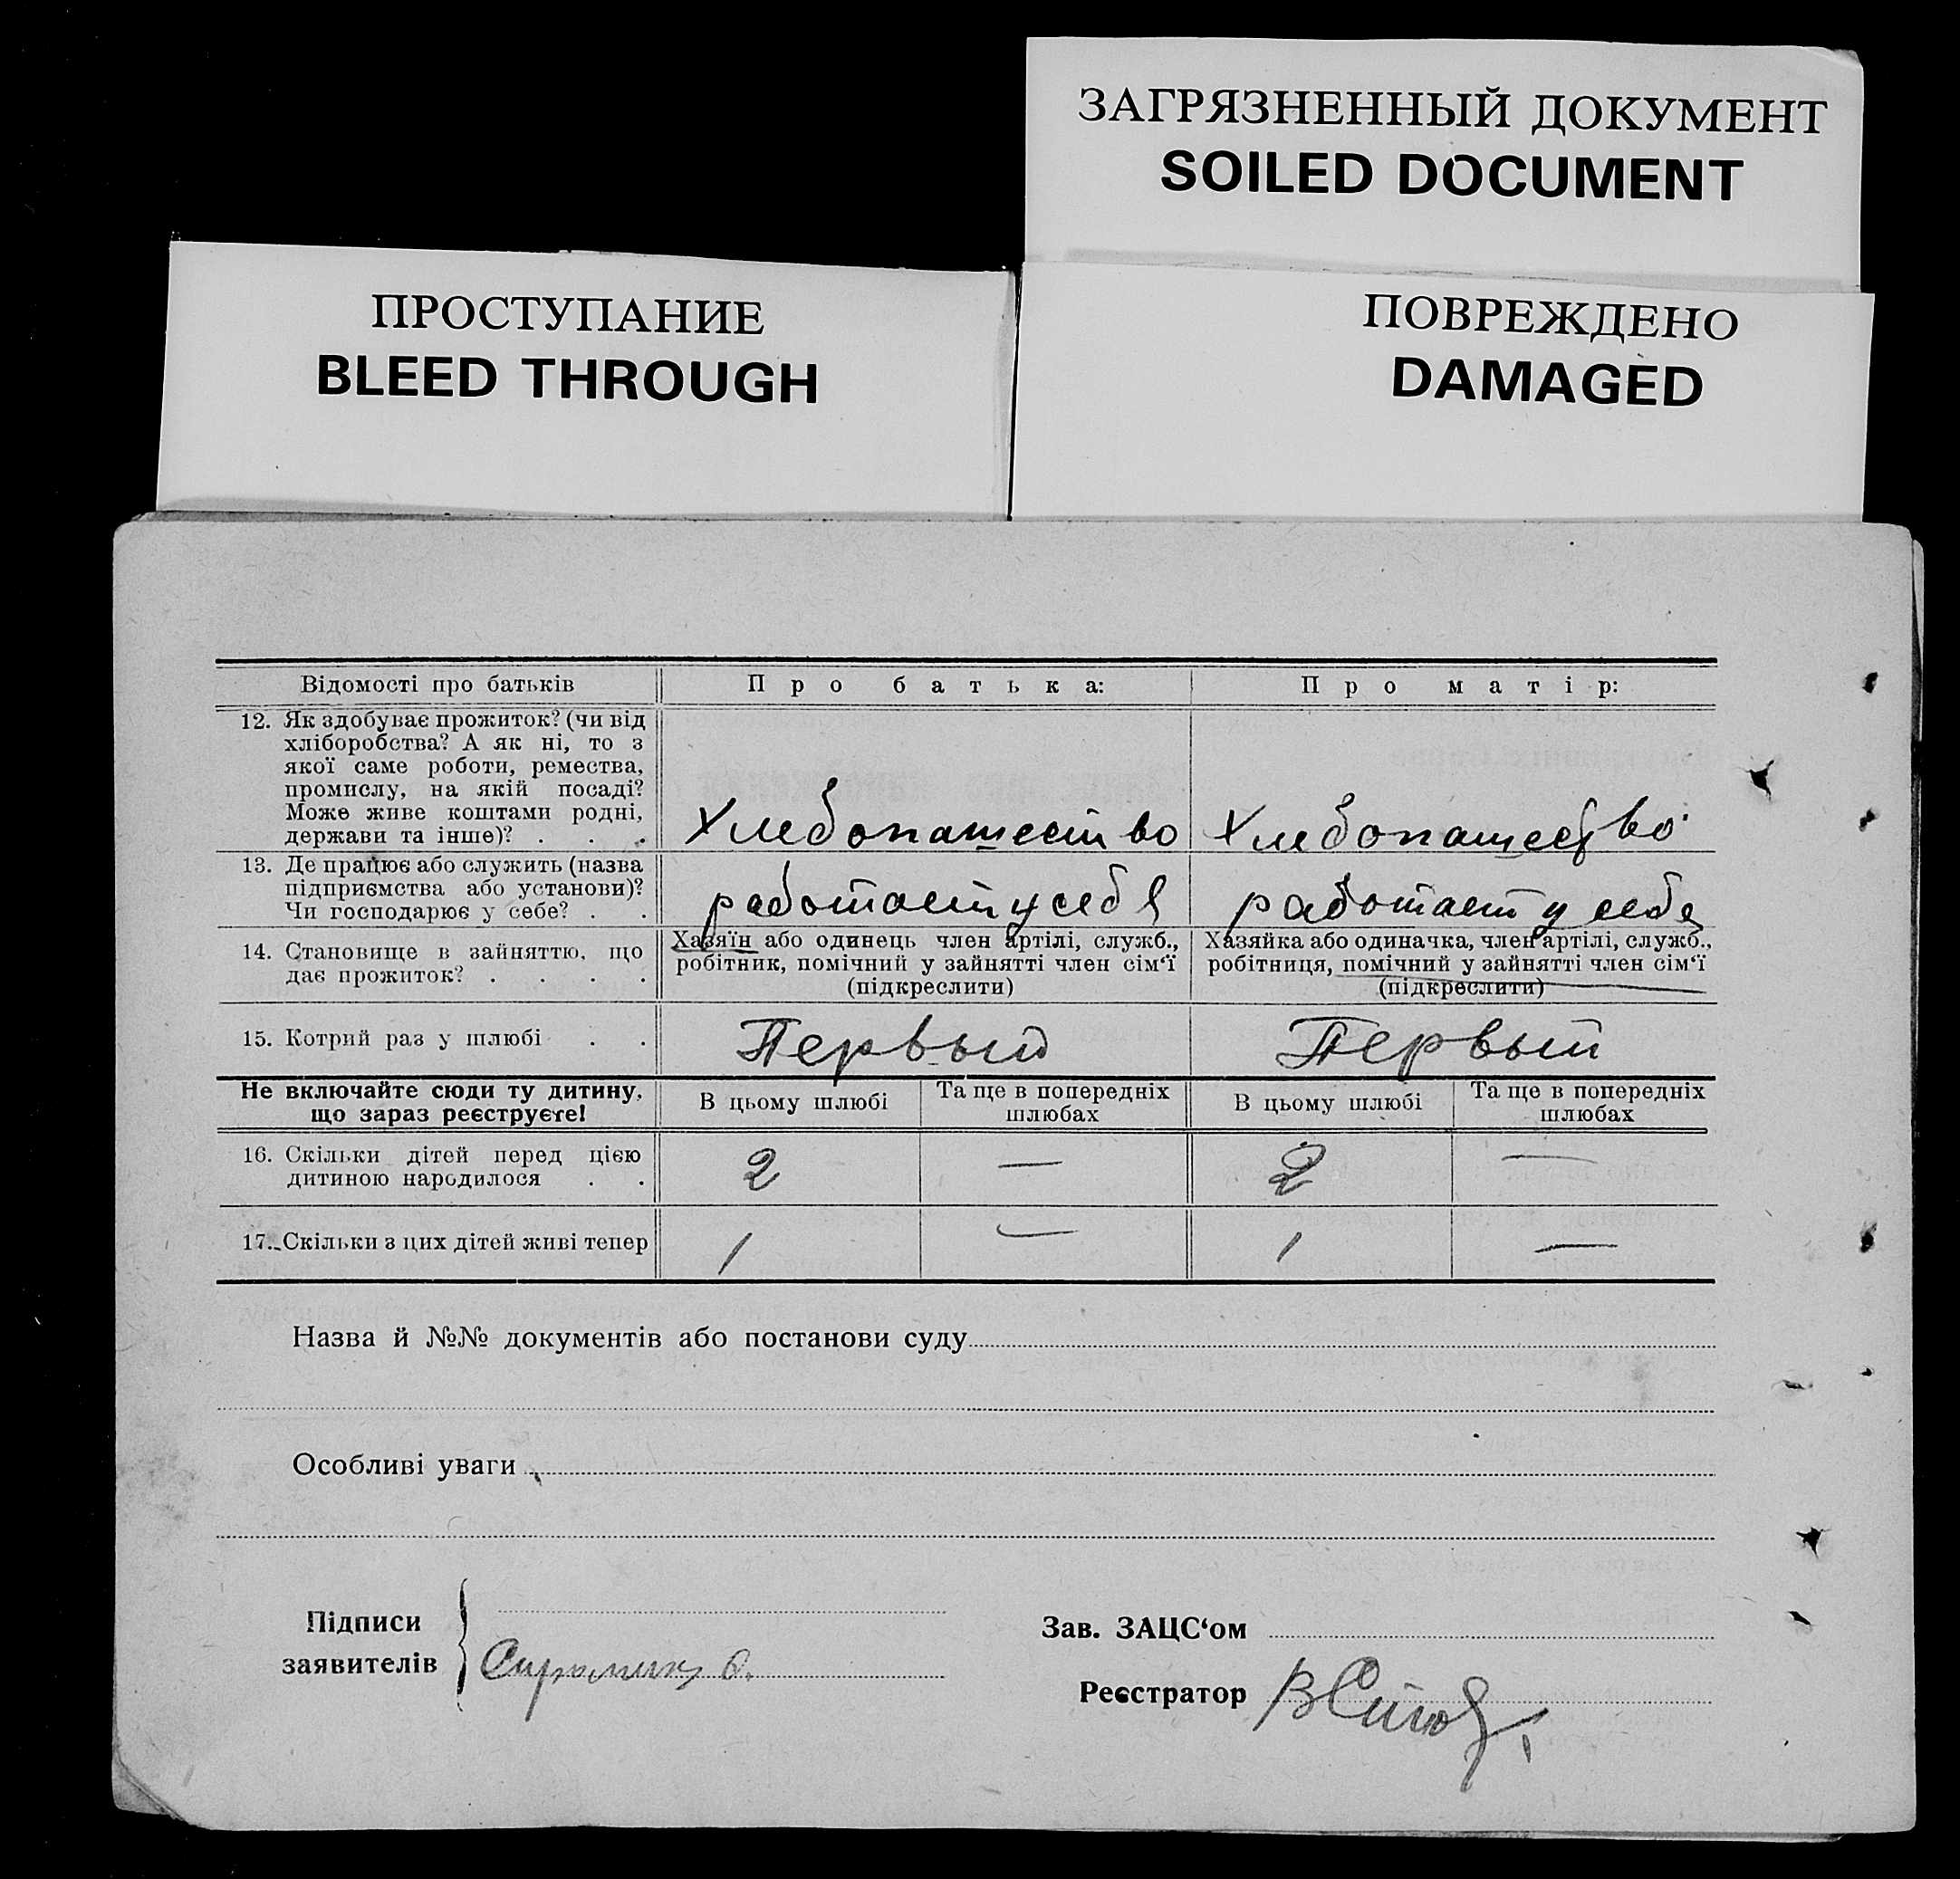 ЗАГРЯЗНЕННЫЙ ДОКУМЕНТ
SOILED DOCUMENT
ПРОСТУПАНИЕ
BLEED THROUGH
ПОВРЕЖДЕНО
DAMAGED
Відомості про батьків
Про батька:
Про матір:
12. Як здобуває прожиток? (чи від
хліборобства? А як ні, то з
якої саме роботи, ремества,
промислу, на якій посаді?
Може живе коштами родні,
держави та інше)? . . .
Хлебопашество
Хлебопашество
13. Де працює або служить (назва
підприємства або установи)?
Чи господарює у себе? . .
работает у себя
работает у себя
14. Становище в зайняттю, що
дає прожиток? . . . .
Хазяїн або одинець член артілі, служб.,
робітник, помічний у зайнятті член сім‘ї
(підкреслити)
Хазяйка або одиначка, член артілі, служб.,
робітниця, помічний у зайнятті член сім‘ї
(підкреслити)
15. Котрий раз у шлюбі . .
Первый
Первый
Не включайте сюди ту дитину,
що зараз реєструєте!
В цьому шлюбі
Та ще в попередніх
шлюбах
В цьому шлюбі
Та ще в попередніх
шлюбах
16. Скільки дітей перед цією
дитиною народилося . .
2
—
2
—
17. Скільки з цих дітей живі тепер
1
—
1
—
Назва й №№ документів або постанови суду
Особливі уваги
Підписи
заявителів
Зав. ЗАЦС‘ом
Реєстратор